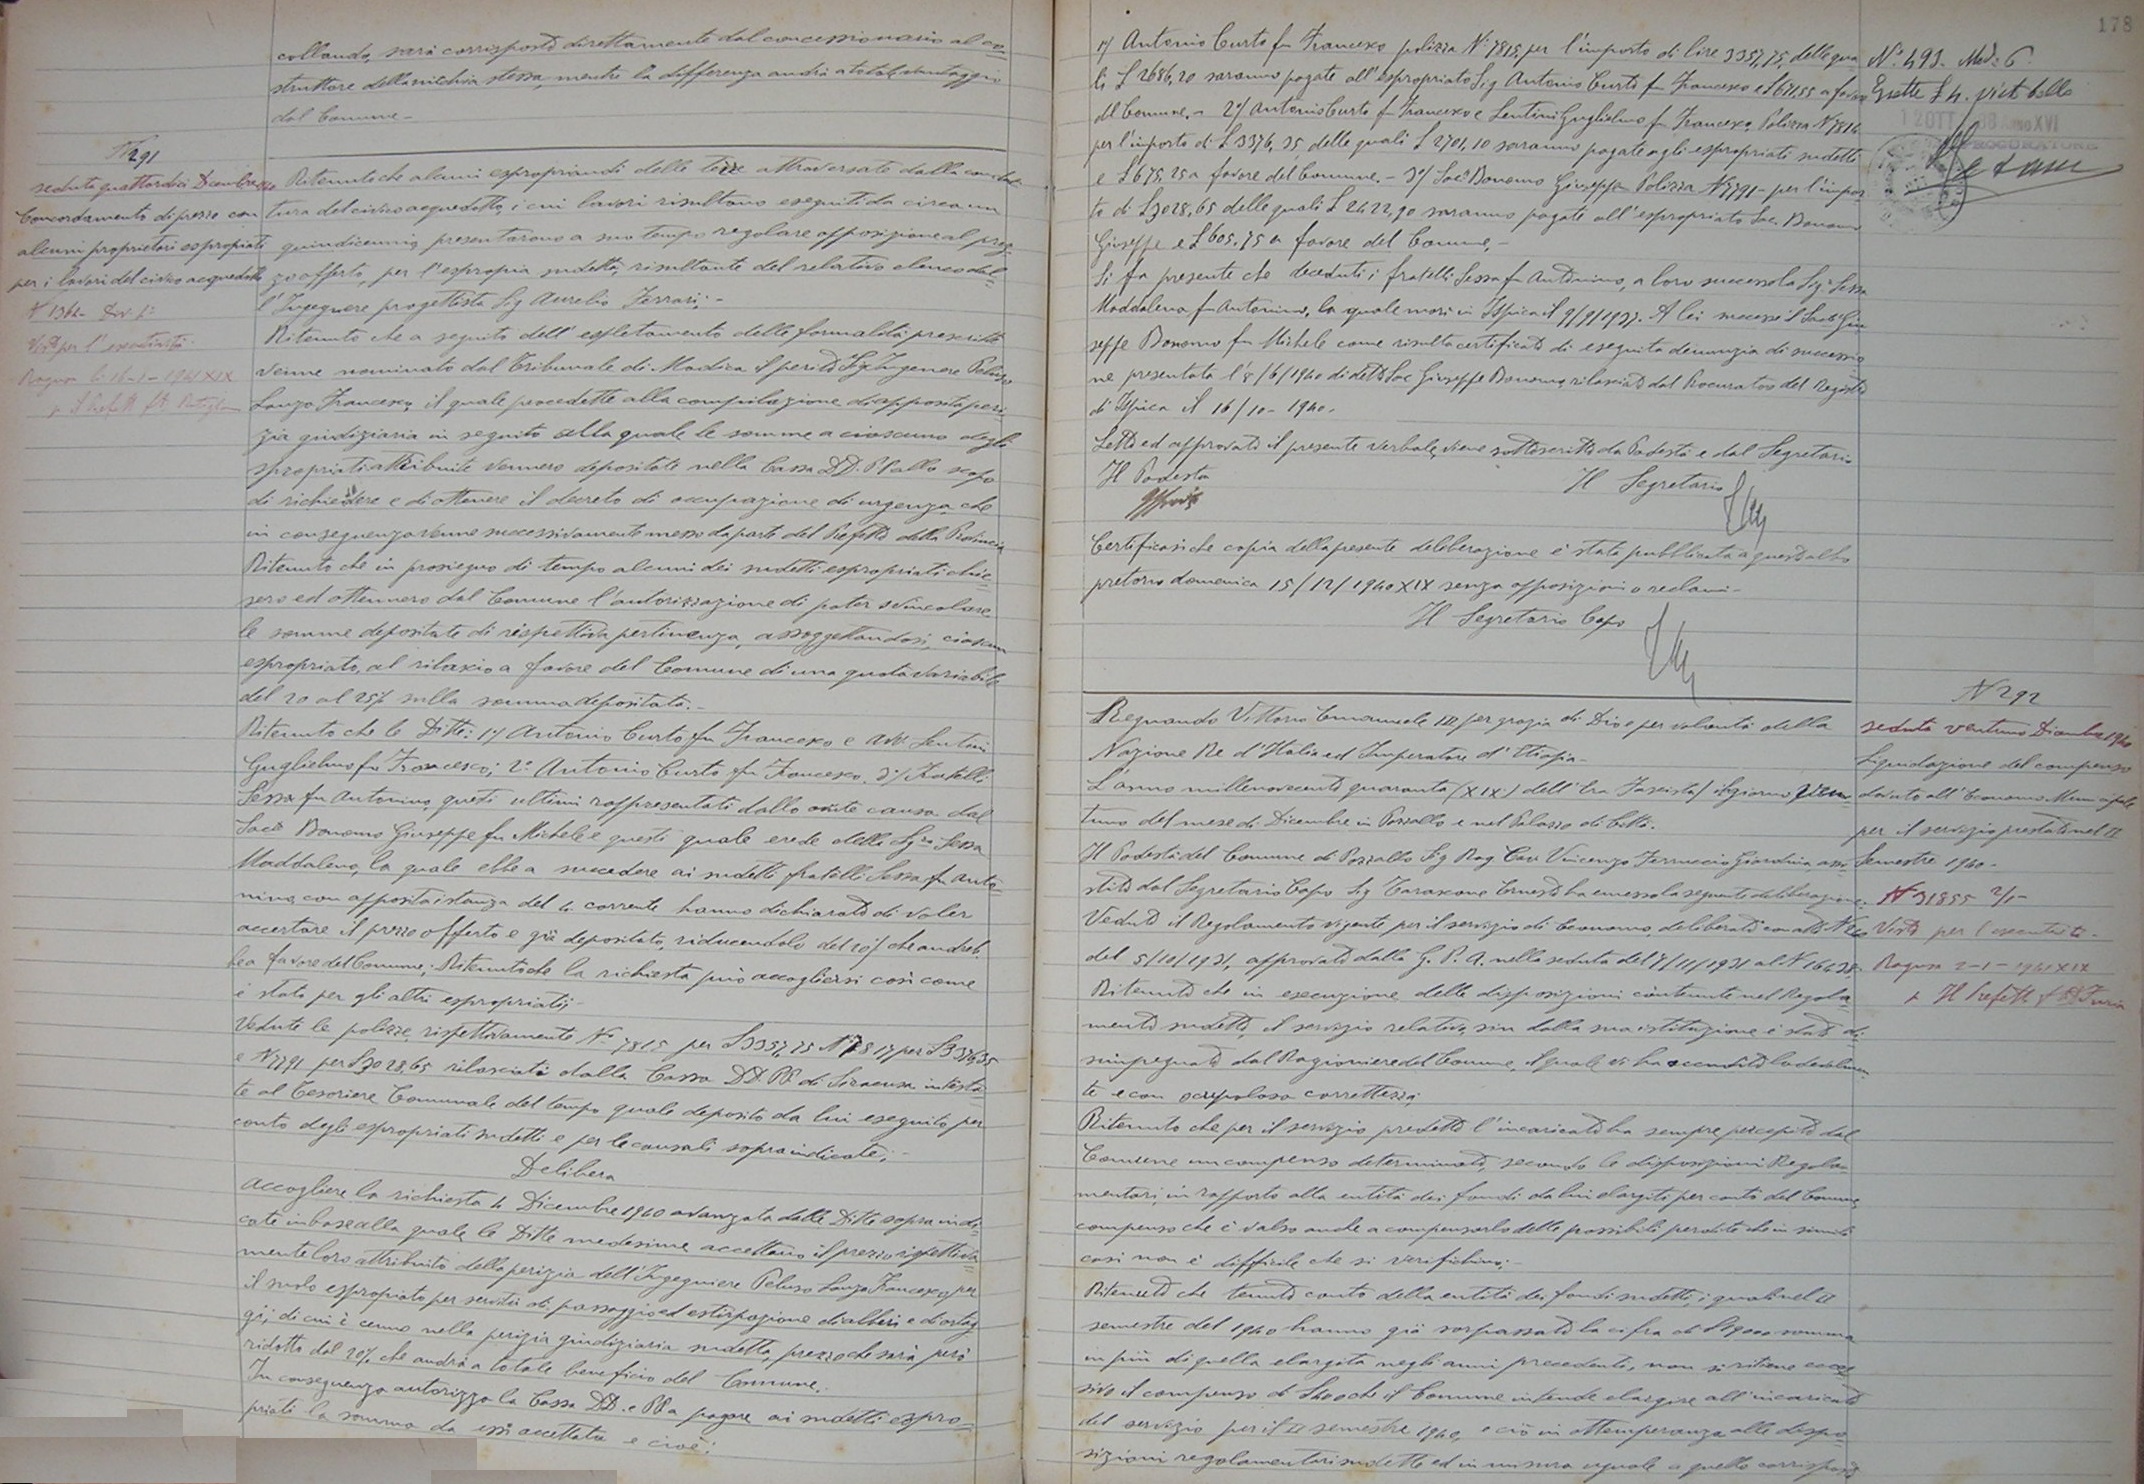 collando, sarà corrisposto direttamente dal concessionario al co=
struttore della nicchia stessa, mentre la differenza andrà a totale vantaggio
del Comune –
N 291
seduta quattordici Dicembre
Concordamento di prezzo con
alcuni proprietari espropriati
per i lavori del civico acquedotto
N 1362 – Div.
Visto per l'esecutività
Ragusa li 16-1-1941 XIX
p. Il Prefetto
Ritenuto che alcuni espropriandi delle terre attraversate dalla condut=
tura del civico acquedotto, i cui lavori risultano eseguiti da circa un
quindicennio, presentarono a suo tempo regolare opposizione al prez=
zo offerto, per l'espropria sudetta, risultante del relativo elenco del=
l'Ingegnere progettista Sig Aurelio Ferrari; –
Ritenuto che a seguito dell'espletamento delle formalità prescritte
venne nominato dal Tribunale di Modica il perito Sig. Ingegnere Peluso
Lanza Francesco, il quale procedette alla compilazione di apposita peri=
zia giudiziaria in seguito alla quale le somme a ciascuno degli
spropriati attribuite vennero depositate nella Cassa DD. PP allo scopo
di richiedere e di ottenere il decreto di occupazione di urgenza che
in conseguenza venne successivamente messo da parte del Prefetto della Provincia
Ritenuto che in prosieguo di tempo alcuni dei sudetti espropriati chie=
sero ed ottennero dal Comune l'autorizzazione di poter svincolare
le somme depositate di rispettiva pertinenza, assoggettandosi, ciascun
espropriato, al rilascio a favore del Comune di una quota variabile
del 20 al 25% sulla somma depositata. –
Ritenuto che le Ditte: 1°) Antonio Curto fu Francesco e avv Lentini
Guglielmo fu Francesco; 2° Antonio Curto fu Francesco, 3°) Fratelli
Sessa fu Antonino, questi ultimi rappresentati dallo avente causa dal
Sac. Bonomo Giuseppe fu Michele e questi quale erede della Sig.ra Sessa
Maddalena, la quale ebbe a succedere ai sudetti fratelli Sessa fu Anto=
nino, con apposita istanza del 4 corrente hanno dichiarato di voler
accettare il prezzo offerto e già depositato, riducendolo del 20% che andreb=
be a favore del Comune; Ritenuto che la richiesta può accogliersi così come
è stato per gli altri espropriati; –
Vedute le polizze, rispettivamente N° 7815 per £ 3357,75 N° 7817 per £ 3376,35
e N 7791 per £ 3028,65 rilasciate dalla Cassa DD. PP. di Siracusa intesta=
te al Tesoriere Comunale del tempo quale deposito da lui eseguito per
conto degli espropriati sudetti e per le causali sopraindicate; –
Delibera
accogliere la richiesta 4 Dicembre 1940 avanzata dalle Ditte sopra indi=
cate in base alla quale le Ditte medesime accettano il prezzo rispettiva=
mente loro attribuito della perizia dell'Ingegniere Peluso Lanza Francesco, per
il suolo espropriato per servitù di passaggio ed estirpazione di alberi e di ortag=
gi, di cui è cenno nella perizia giudiziaria sudetta, prezzo che sarà però
ridotto del 20% che andrà a totale beneficio del Comune. –
In conseguenza autorizza la Cassa DD. e PP a pagare ai sudetti espro=
priati la somma da essi accettata e cioè:
178
1°) Antonio Curto fu Francesco polizza N° 7815, per l'importo di lire 3357,75, delle qua=
li £ 2686,20 saranno pagate all'espropriato Sig Antonio Curto fu Francesco e £ 671,55 a favore
del Comune. – 2°) Antonio Curto fu Francesco e Lentini Guglielmo fu Francesco, Polizza N 7816
per l'importo di £ 3376,35 delle quali £ 2701,10 saranno pagate agli espropriati sudetti
e £ 675,25 a favore del Comune. – 3°) Sac. Bonomo Giuseppe Polizza N 7791 – per l'impor=
to di £ 3028,65 delle quali £ 2422,90 saranno pagate all'espropriato Sac. Bonomo
Giuseppe e £ 605,75 a favore del Comune. –
Si fa presente che deceduti i fratelli Sessa fu Antonino, a loro successe la Sig.ra Sessa
Maddalena fu Antonino, la quale morì in Ispica il 9/9/1937. A lei successe il Sac. Giu=
seppe Bonomo fu Michele come risulta certificato di eseguita denunzia di successio=
ne presentata l'8/6/1940 di detto Sac Giuseppe Bonomo, rilasciato dal Procuratore del Registro
di Ispica il 16/10 – 1940.
Letto ed approvato il presente verbale, viene sottoscritto da Podestà e dal Segretario
Il Podestà
Il Segretario
Certificasi che copia della presente deliberazione è stata pubblicata a quest'albo
pretorio domenica 15/12/1940 XIX senza opposizioni o reclami –
Il Segretario Capo
N° 493 – Mod. 6
Esatte £ 4.
12 OTT ANNO XVI
PROCURATORE
Regnando Vittorio Emanuele III per grazia di Dio e per volontà della
Nazione Re d'Italia ed Imperatore d'Etiopia –
L'anno millenovecento quaranta (XIX) dell'Era Fascista) il giorno ven=
tuno del mese di Dicembre in Pozzallo e nel Palazzo di Città.
Il Podestà del Comune di Pozzallo Sig Rag Cav Vincenzo Ferruccio Giardina, assi=
stito dal Segretario Capo Sig Tarascone Ernesto ha emesso la seguente deliberazione.
Veduto il Regolamento vigente per il servizio di Economo, deliberato con atto N
del 5/10/1931, approvato dalla G. P. A. nella seduta del 7/11/1931 al N 16638;
Ritenuto che in esecuzione delle disposizioni contenute nel Regola=
mento sudetto, il servizio relativo, sin dalla sua istituzione è stato di=
simpegnato dal Ragioniere del Comune, il quale vi ha accudito lodevolmen=
te e con scrupolosa correttezza;
Ritenuto che per il servizio predetto l'incaricato ha sempre percepito dal
Comune un compenso determinato, secondo le disposizioni Regola=
mentari, in rapporto alla entità dei fondi da lui elargiti per conto del Comune
compenso che è valso anche a compensarlo delle possibili perdite che in simili
casi non è difficile che si verifichino; –
Ritenuto che tenuto conto della entità dei fondi sudetti, i quali nel II
semestre del 1940 hanno già sorpassato la cifra di £ 19000 somma
in più di quella elargita negli anni precedenti, non si ritiene ecces=
sivo il compenso di £ che il Comune intende elargire all'incaricato
del servizio per il II semestre 1940, e ciò in ottemperanza alle dispo=
sizioni regolamentari sudette ed in misura uguale a quello corrisposto
N 292
seduta ventuno Dicembre 1940
Liquidazione del compenso
dovuto all'Economo Municipale
per il servizio prestato nel II
Semestre 1940 –
N 31855 2/1 –
Visto per l'esecutività –
Ragusa 2-1-1941 XIX
p Il Prefetto